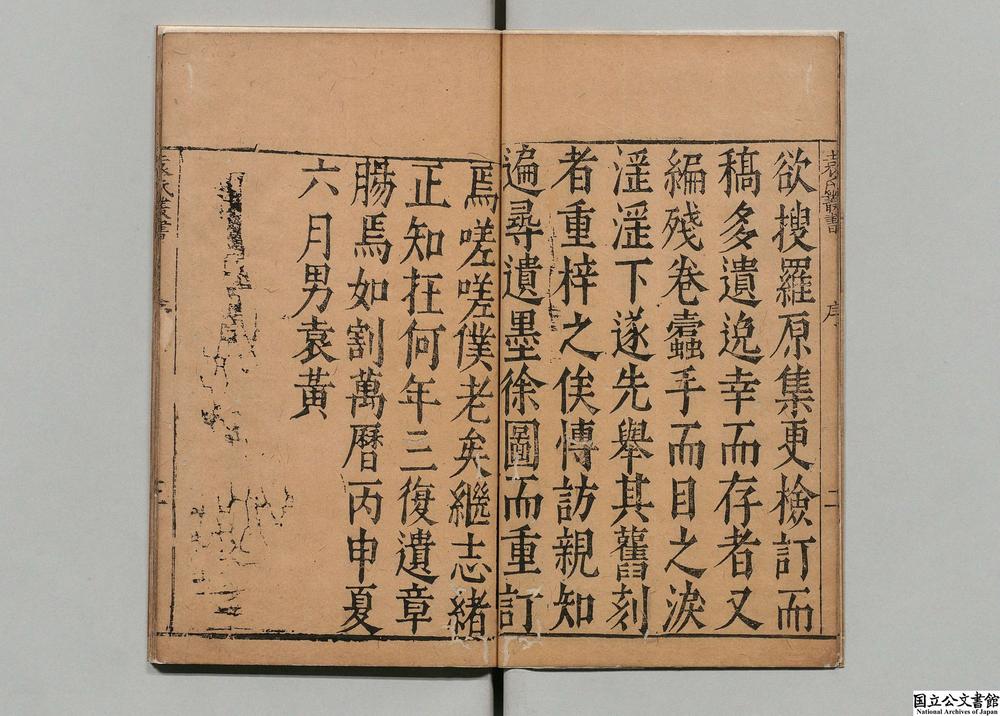 袁氏叢書
序
二
欲搜羅原集更檢訂而
稿多遺逸幸而存者又
編殘卷蠹手而目之淚
滛滛下遂先舉其舊刻
者重梓之俟博訪親知
遍尋遺墨徐圖而重訂
焉嗟嗟僕老矣繼志緒
正知在何年三復遺章
腸焉如割萬曆丙申夏
六月男袁黃
袁氏叢書
国立公文書館
National Archives of Japan